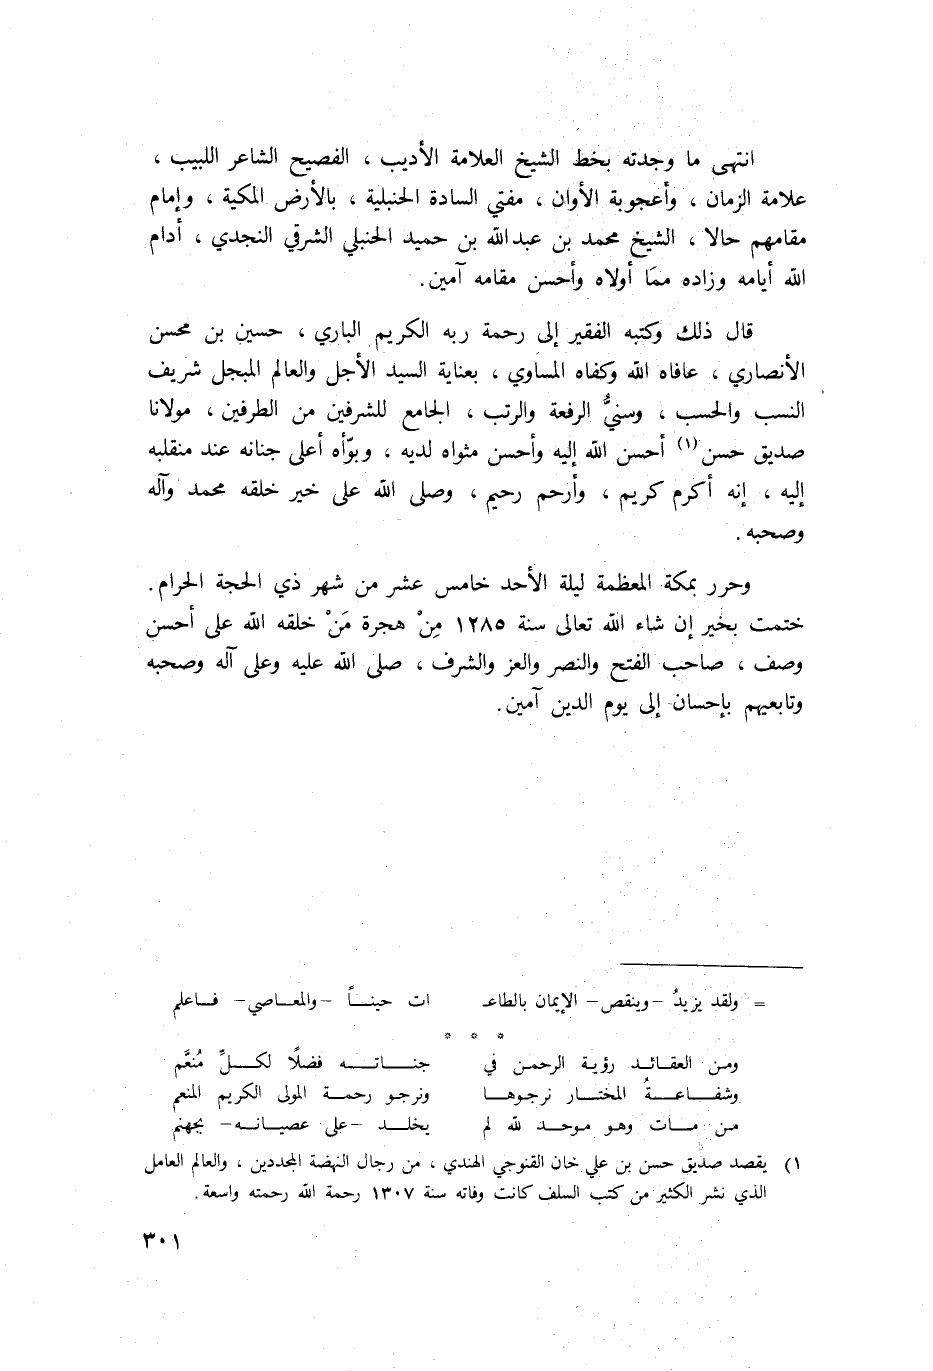 انتهى ما وجدته بخط الشيخ العلامة الأديب ، الفصيح الشاعر اللبيب ،
علامة الزمان ، وأعجوبة الأوان ، مفتي السادة الحنبلية ، بالأرض المكية ، وإمام
مقامهم حالا ، الشيخ محمد بن عبدالله بن حميد الحنبلي الشرقي النجدي ، أدام
الله أيامه وزاده ممّا أولاه وأحسن مقامه آمين.
قال ذلك وكتبه الفقير إلى رحمة ربه الكريم الباري ، حسين بن محسن
الأنصاري ، عافاه الله وكفاه المساوي ، بعناية السيد الأجل والعالم المبجل شريف
النسب والحسب ، وسنيُّ الرفعة والرتب ، الجامع للشرفين من الطرفين ، مولانا
صديق حسن (١) أحسن الله إليه وأحسن مثواه لديه ، وبوّأه أعلى جنانه عند منقلبه
إليه ، إنه أكرم كريم ، وأرحم رحيم ، وصلى الله على خير خلقه محمد وآله
وصحبه .
وحرر بمكة المعظمة ليلة الأحد خامس عشر من شهر ذي الحجة الحرام .
ختمت بخير إن شاء الله تعالى سنة ١٢٨٥ مِنْ هجرة مَنْ خلقه الله على أحسن
وصف ، صاحب الفتح والنصر والعز والشرف ، صلى الله عليه وعلى آله وصحبه
وتابعيهم بإحسان إلى يوم الدين آمين .
= ولقد يزيدُ -وينقص- الإيمان بالطاعـ ات حينــاً -والمعـاصي- فـاعلم
* * *
ومـن العقـائـد رؤيـة الرحمـن في جنــاتــه فضلًا لكــلِّ مُنعَّم
وشفــاعــةُ المختــار نرجـوهــا ونرجـو رحمـة المولى الكريم المنعم
مـن مــات وهـو مـوحـد لله لم يخلـد -على عصيـانـه- بجهنم
١) يقصد صدّيق حسن بن علي خان القنوجي الهندي ، من رجال النهضة المجددين ، والعالم العامل
الذي نشر الكثير من كتب السلف كانت وفاته سنة ١٣٠٧ رحمة الله رحمته واسعة .
٣٠١